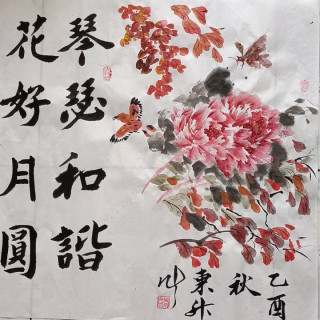 琴瑟和諧
花好月圓
乙酉
秋
東升